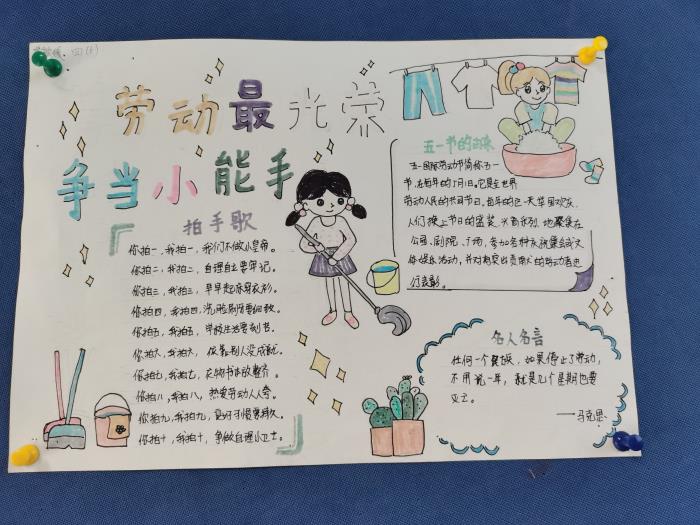 劳动最光荣
争当小能手
拍手歌
你拍一，我拍一，我们不做小皇帝。
你拍二，我拍二，自理自立要牢记。
你拍三，我拍三，早早起床穿衣衫。
你拍四，我拍四，洗脸刷牙要细致。
你拍五，我拍五，学校生活要刻苦。
你拍六，我拍六，依靠别人没成就。
你拍七，我拍七，衣物书本放整齐。
你拍八，我拍八，热爱劳动人人夸。
你拍九，我拍九，良好习惯要持久。
你拍十，我拍十，争做自理小卫士。
五一节的由来
五一国际劳动节简称五一
节，在每年的5月1日。它是全世界
劳动人民的共同节日。每年的这一天举国欢庆，
人们换上节日的盛装，兴高采烈，地聚集在
公园、剧院、广场，参加各种庆祝集会或文
体娱乐活动，并对有突出贡献的劳动者进
行表彰。
名人名言
任何一个民族，如果停止了劳动，
不用说一年，就是几个星期也要
灭亡。
——马克思